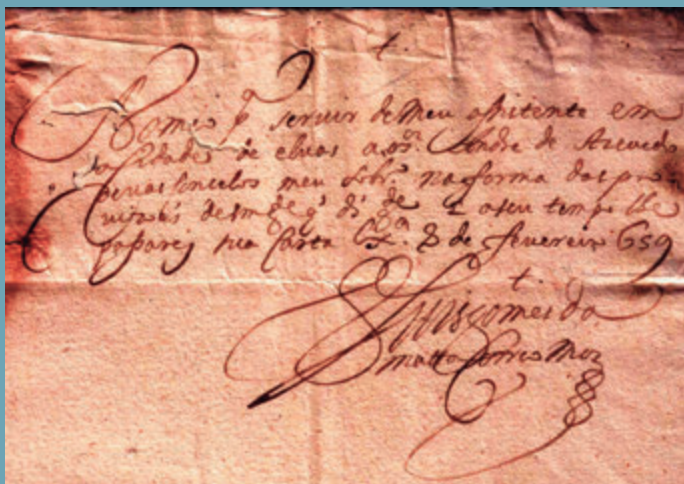 Nomeo p servir de meu assistente em
a Cidade de elvas a o sr. Andre de Azevedo
de vasconcelos meu sobr. na forma das pro
visões de smgde q ds gde e a seu tempo lhe
passarej sua Carta Lxa. 8 de fevereiro 659
Luis gomes da
matta Correo Mor